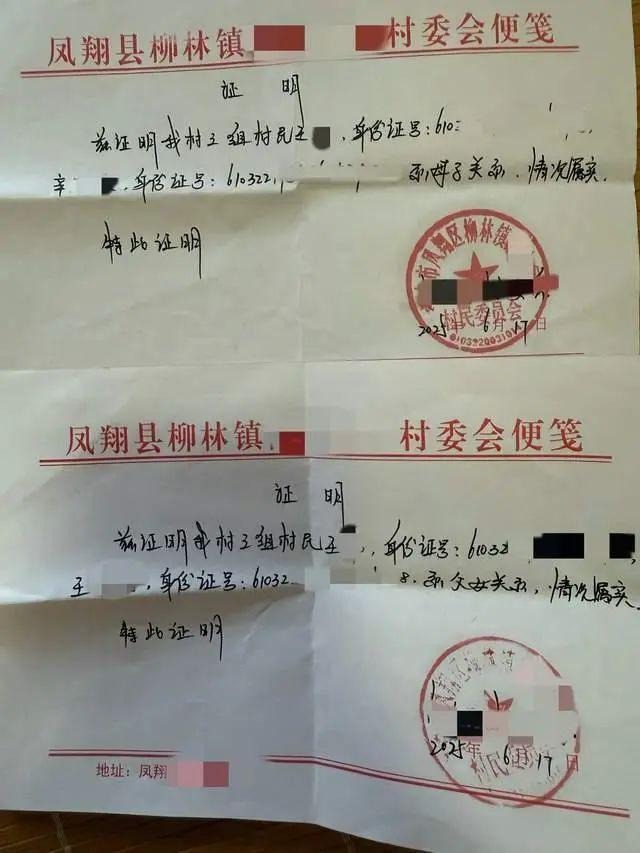 凤翔县柳林镇 村委会便笺
证 明
兹证明我村三组村民王 ,身份证号:610
辛 ,身份证号:610322 系母子关系,情况属实.
特此证明
市凤翔区柳林镇
村民委员会
2025年6月17日
凤翔县柳林镇 村委会便笺
证 明
兹证明我村三组村民王 ,身份证号:61032
王 ,身份证号:61032 8.系父女关系,情况属实.
特此证明
村民
2025年6月17日
地址:凤翔